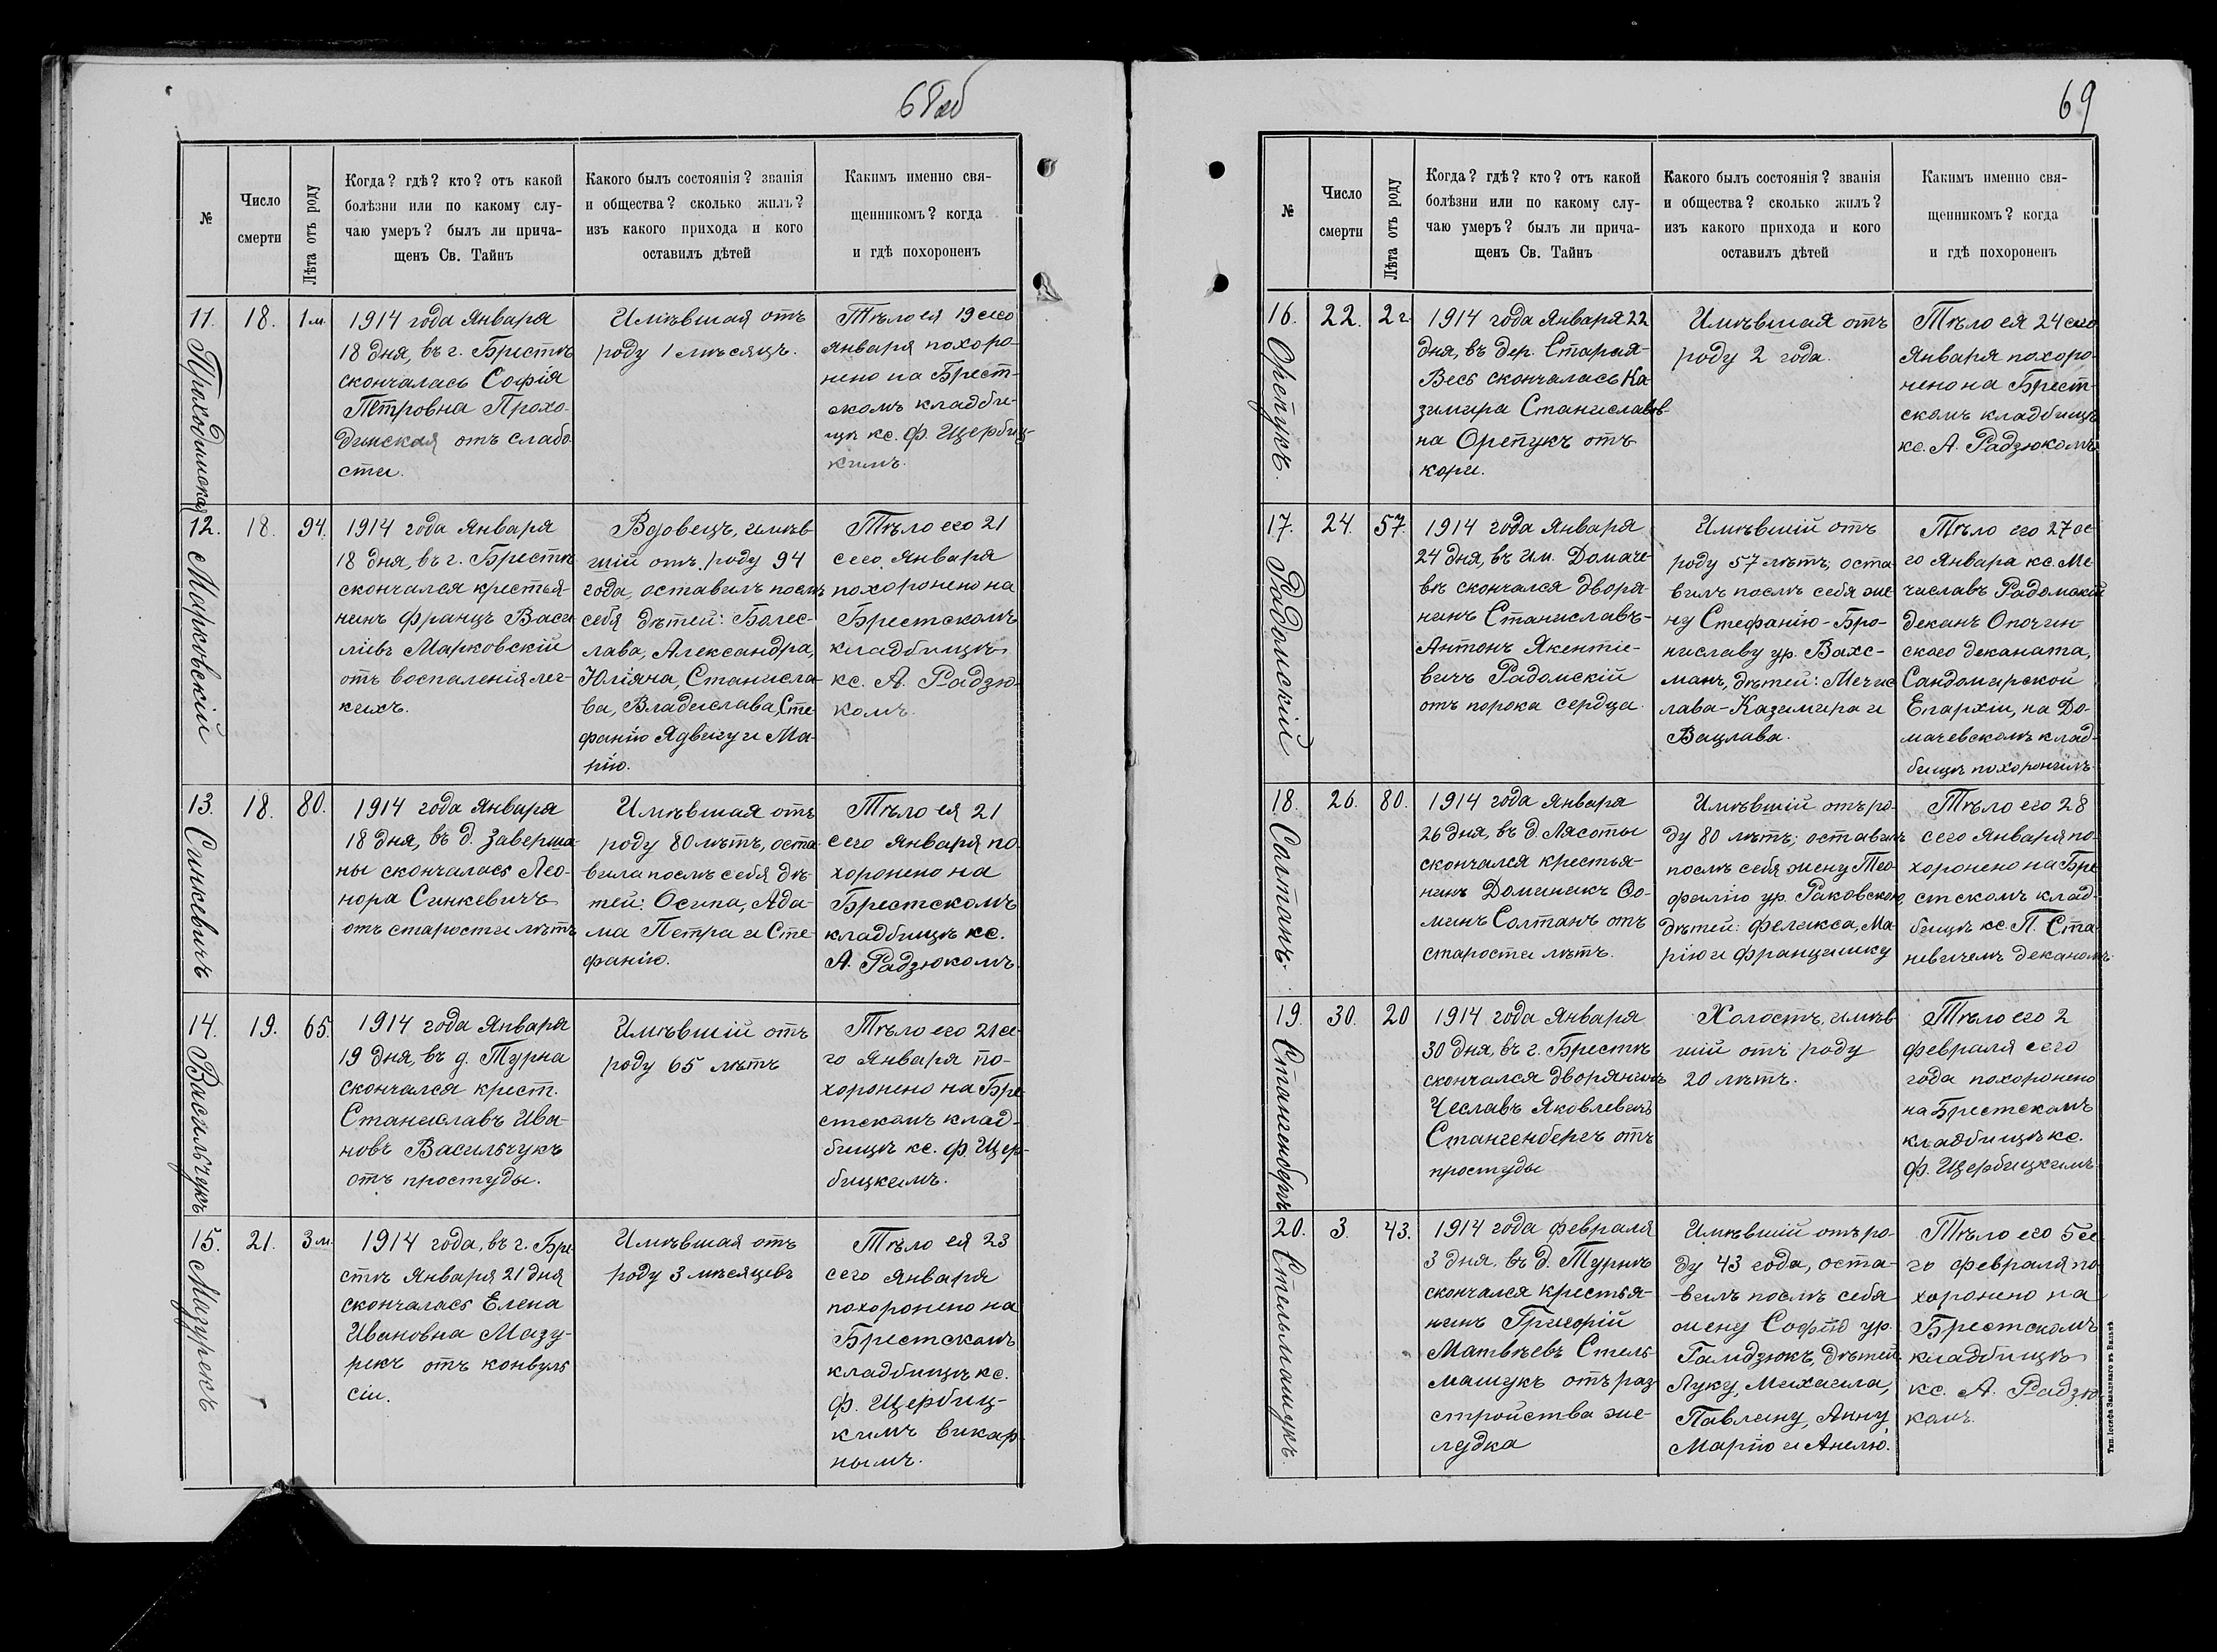 68об
№
Число
смерти
Лѣта отъ роду
Когда? гдѣ? кто? отъ какой
болѣзни или по какому слу-
чаю умеръ? былъ ли прича-
щенъ Св. Тайнъ
Какого былъ состоянія? званія
и общества? сколько жилъ?
изъ какого прихода и кого
оставилъ дѣтей
Какимъ именно свя-
щенникомъ? когда
и гдѣ похороненъ
11.
Проходминская
18.
1 м.
1914 года Января
18 дня, въ г. Брестѣ
скончалась Софія
Петровна Прохо-
дминская отъ слабо
сти.
Имѣвшая отъ
роду 1 мѣсяцъ.
Тѣло ея 19 сего
Января похоро-
нено на Брест-
скомъ кладби-
щѣ кс. Ф. Щербиц-
кимъ.
12.
Марковскій
18.
94.
1914 года Января
18 дня, въ г. Брестѣ
скончался крестья-
нинъ Францъ Васи
ліевъ Марковскій
отъ воспаленія лег-
кихъ.
Вдовецъ, имѣв
шій отъ роду 94
года, оставилъ послѣ
себя дѣтей: Болес-
лава, Александра,
Юліана, Станисла-
ва, Владислава, Сте-
фанію Ядвигу и Ма-
рію.
Тѣло его 21
сего Января
похоронено на
Брестскомъ
кладбищѣ
кс. А. Радзю-
комъ.
13.
Синкевичъ
18.
80.
1914 года Января
18 дня, въ д. Заверша-
ны скончалась Лео-
нора Синкевичъ
отъ старости лѣтъ
Имѣвшая отъ
роду 80 лѣтъ, оста-
вила послѣ себя дѣ-
тей: Осипа, Ада-
ма Петра и Сте-
фанію.
Тѣло ея 21
сего Января по-
хоронено на
Брестскомъ
кладбищѣ кс.
А. Радзюкомъ.
14.
Васильчукъ
19.
65.
1914 года Января
19 дня, въ д. Турна
скончался крест.
Станиславъ Ива-
новъ Васильчукъ
отъ простуды.
Имѣвшій отъ
роду 65 лѣтъ
Тѣло его 21 се-
го Января по-
хоронено на Бре-
стскомъ клад-
бищѣ кс. Ф. Щер-
бицкимъ.
15.
Мазурекъ
21.
3 м.
1914 года, въ г. Бре-
стѣ Января 21 дня
скончалась Елена
Ивановна Мазу-
рекъ отъ конвуль
сіи.
Имѣвшая отъ
роду 3 мѣсяцевъ
Тѣло ея 23
сего Января
похоронено на
Брестскомъ
кладбищѣ кс.
Ф. Щербиц-
кимъ викар-
нымъ.
69
№
Число
смерти
Лѣта отъ роду
Когда? гдѣ? кто? отъ какой
болѣзни или по какому слу-
чаю умеръ? былъ ли прича-
щенъ Св. Тайнъ
Какого былъ состоянія? званія
и общества? сколько жилъ?
изъ какого прихода и кого
оставилъ дѣтей
Какимъ именно свя-
щенникомъ? когда
и гдѣ похороненъ
16.
Орепукъ.
22.
2 г.
1914 года Января 22
дня, въ дер. Старая-
Весь скончалась Ка-
зимира Станиславов-
на Орепукъ отъ
кори.
Имѣвшая отъ
роду 2 года.
Тѣло ея 24 сего
Января похоро-
нено на Брест-
скомъ кладбищѣ
кс. А. Радзюкомъ
17.
Радомскій
24.
57.
1914 года Января
24 дня, въ им. Домаче-
вѣ скончался дворя-
нинъ Станиславъ-
Антонъ Якентіе-
вичъ Радомскій
отъ порока сердца.
Имѣвшій отъ
роду 57 лѣтъ, оста-
вилъ послѣ себя же-
ну Стефанію-Бро-
ниславу ур. Вахс-
манъ, дѣтей: Мечис
лава-Казимира и
Вацлава.
Тѣло его 27 се-
го Января кс. Ме-
числавъ Радомскій
деканъ Опочин-
ского деканата,
Сандомирской
Епархіи, на До-
мачевскомъ клад-
бищѣ похоронилъ.
18.
Солтанъ.
26.
80.
1914 года Января
26 дня, въ д. Лясоты
скончался крестья-
нинъ Доминикъ Ѳо-
минъ Солтанъ отъ
старости лѣтъ.
Имѣвшій отъ ро-
ду 80 лѣтъ; оставилъ
послѣ себя жену Тео-
филію ур. Раковскою,
дѣтей: Феликса, Ма-
рію и Францишку
Тѣло его 28
сего Января по-
хоронено на Бре-
стскомъ клад-
бищѣ кс. П. Ста-
невичемъ деканомъ.
19.
Стангенбергъ
30.
20
1914 года Января
30 дня, въ г. Брестѣ
скончался дворянинъ
Чеславъ Яковлевичъ
Стангенбергъ отъ
простуды
Холостъ, имѣв
шій отъ роду
20 лѣтъ.
Тѣло его 2
февраля сего
года похоронено
на Брестскомъ
кладбищѣ кс.
Ф. Щербицкимъ
20.
Стельмашукъ.
3.
43.
1914 года февраля
3 дня, въ д. Турнѣ
скончался крестья-
нинъ Григорій
Матвѣевъ Стель-
машукъ отъ раз-
стройства же-
лудка
Имѣвшій отъ ро-
ду 43 года, оста-
-вилъ послѣ себя
жену Софію ур.
Гамдзюкъ, дѣтей
Луку, Михаила,
Павлину, Анну,
Марію и Анелю.
Тѣло его 5 се-
го февраля по-
хоронено на
Брестскомъ
кладбищѣ
кс. А. Радзю-
комъ.
Тип. Іосифа Завадзкаго въ Вильнѣ